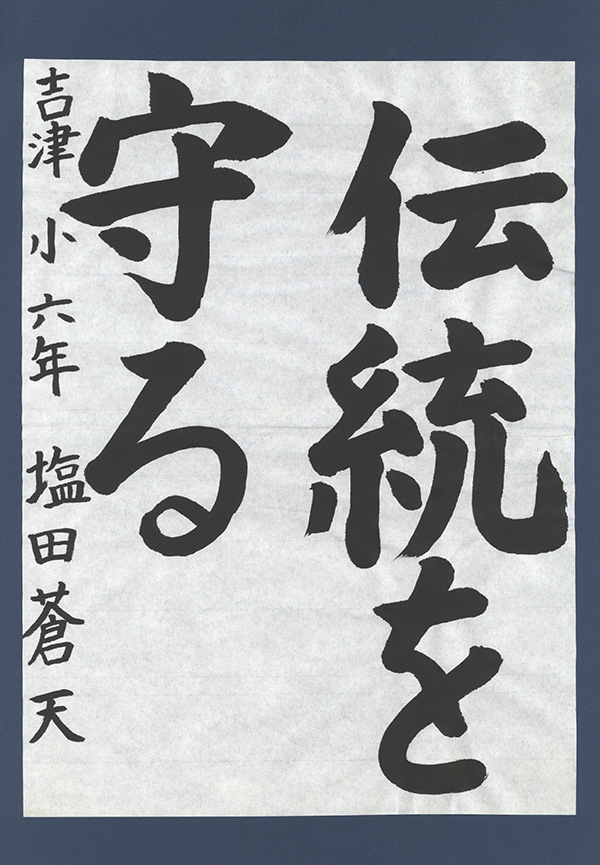 伝統を
守る
吉津小六年 塩田蒼天